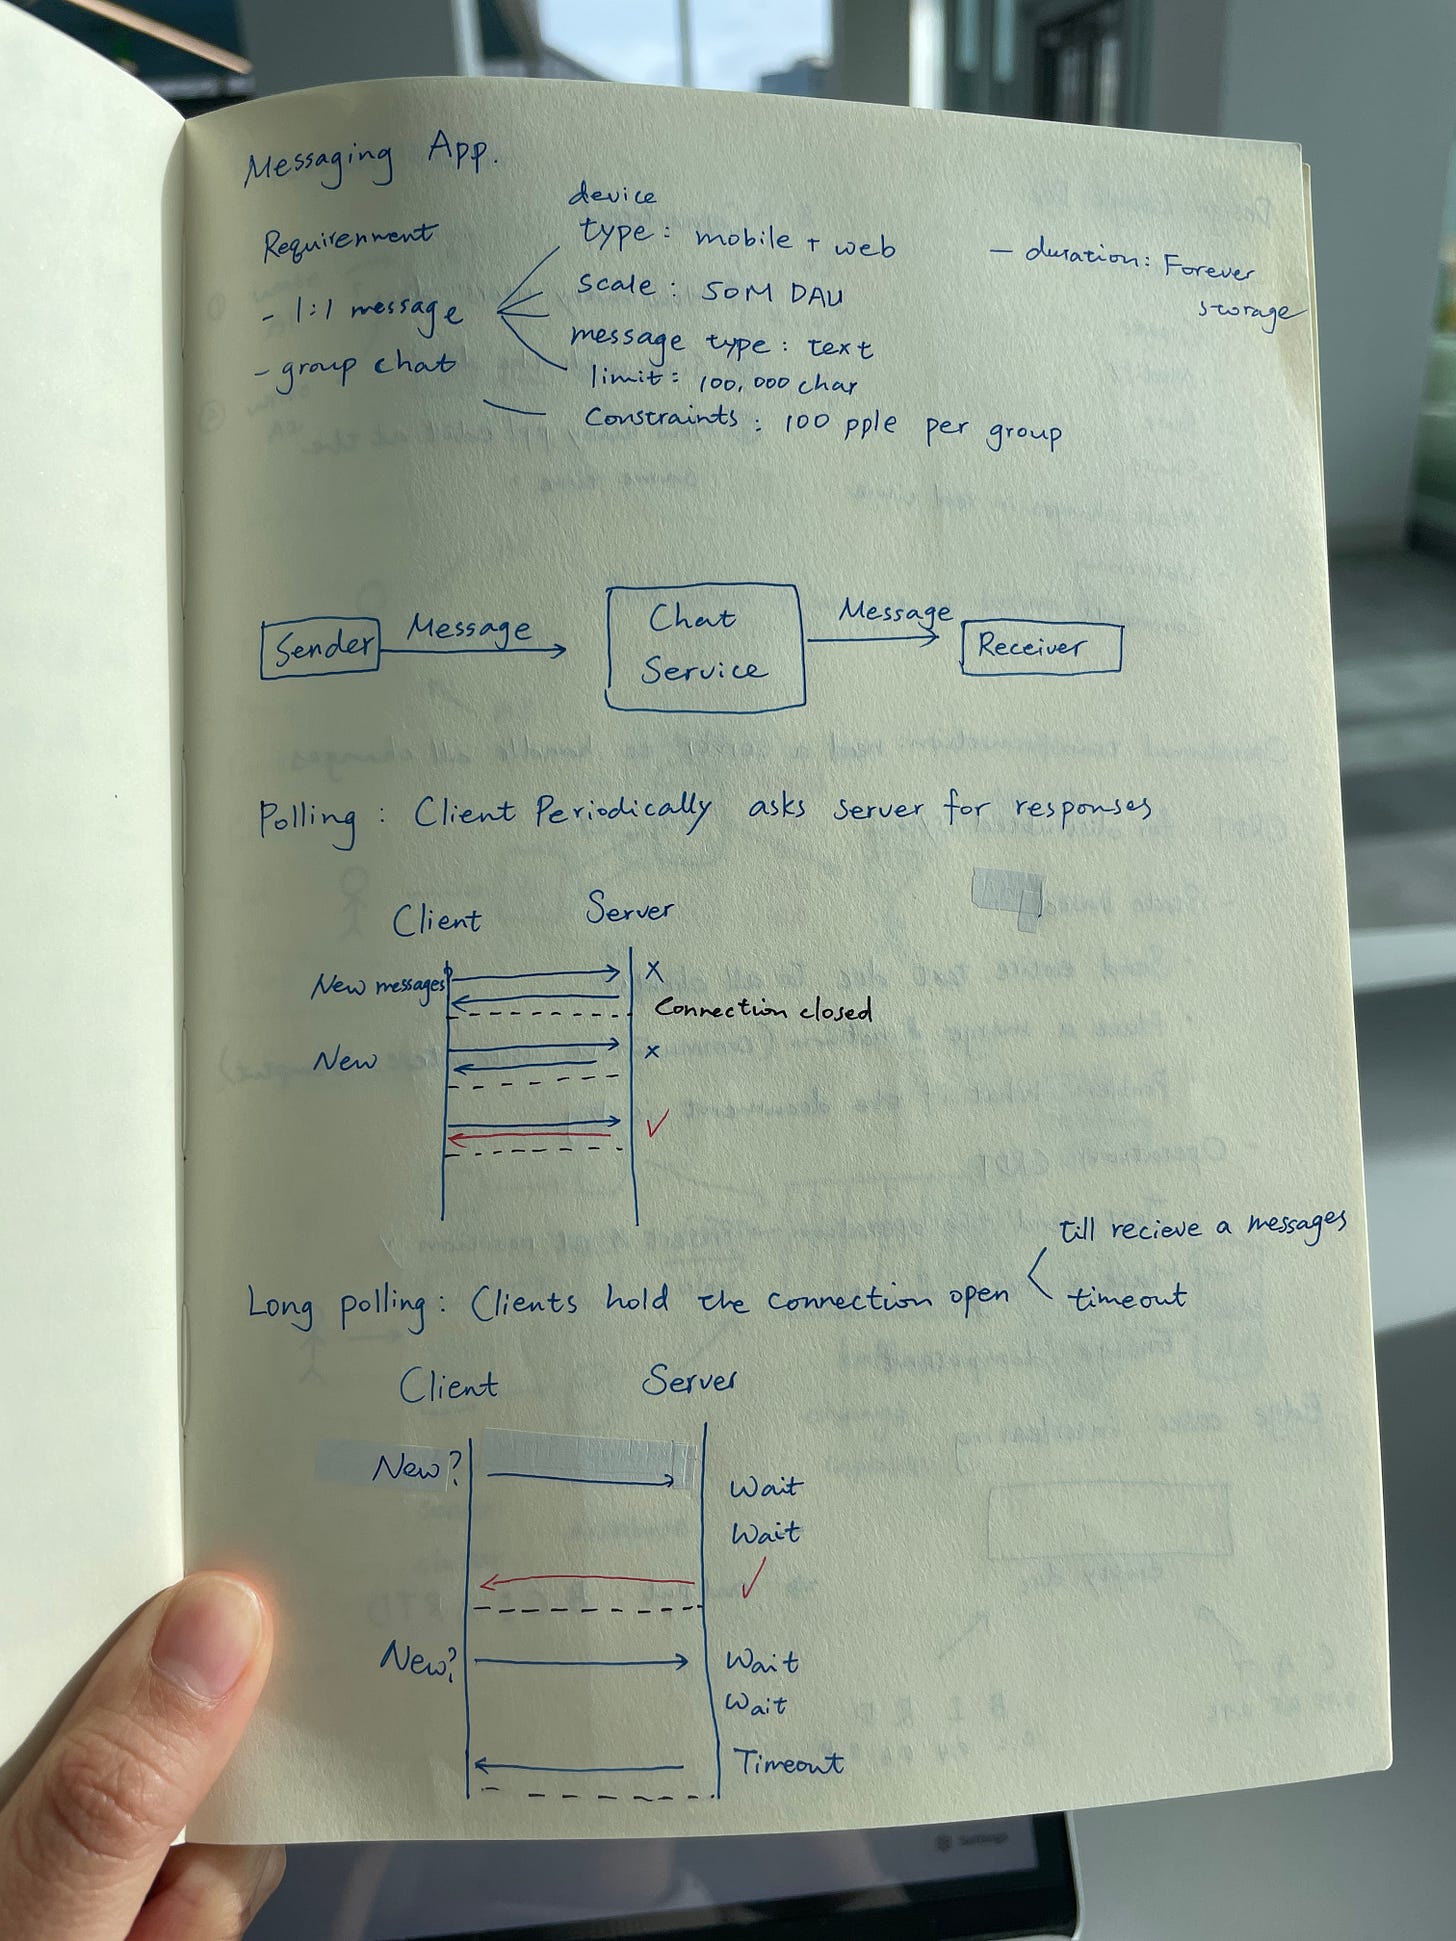 Messaging App.
Requirenment
- 1:1 message
- group chat
device
type: mobile + web
scale: 50M DAU
message type: text
limit: 100,000 char
Constraints: 100 pple per group
- duration: Forever
storage
Sender
Message
Chat
Service
Message
Receiver
Polling: Client Periodically asks server for responses
Client Server
New messages x
Connection closed
New x
✓
Long polling: Clients hold the connection open
till recieve a messages
timeout
Client Server
New?
Wait
Wait
✓
New? Wait
Wait
Timeout